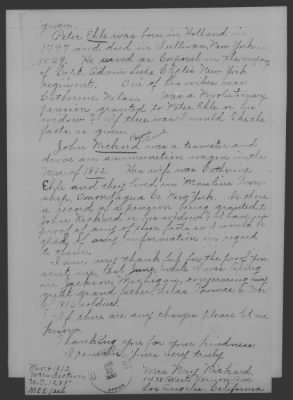 given.
Peter Ehle was born in Holland in
1747 and died in Sullivan, New York in
1829. He served as Corporal in the
of Capt. Adam Leeds New York
regiment. One of his wives was
Catherine Nelson. Was a Revolutionary
pension granted to Peter Ehle or his
widow? If there was I would like the
facts as given.
John Rickard was a teamster and
drove an ammunition wagon in the
War of 1812. His wife was Catherine
Ehle and they lived in Manlius Town-
ship, Onondaga Co. New York. Is there
a record of a pension being granted to
John Rickard or his widow? I have no
proof of any of these facts so I would be
glad of any information in regard
to them.
I am very thankful for the proof you
sent me, last June, while I was living
in Jackson, Michigan, concerning my
great grandfather, Silas
1812 soldier.
If there are any charges please let me
know.
Thanking you for your kindness
I remain, Yours very truly,
Mrs. Ray Rickard
Vernon Ave
Los Angeles, California